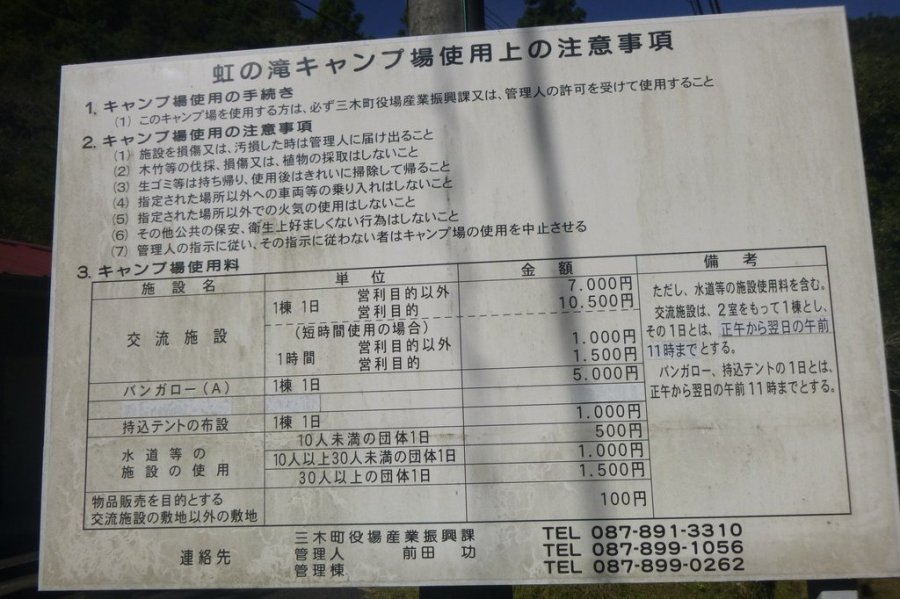 虹の滝キャンプ場使用上の注意事項
1. キャンプ場使用の手続き
(1) このキャンプ場を使用する方は、必ず三木町役場産業振興課又は、管理人の許可を受けて使用すること
2. キャンプ場使用の注意事項
(1) 施設を損傷又は、汚損した時は管理人に届け出ること
(2) 木竹等の伐採、損傷又は、植物の採取はしないこと
(3) 生ゴミ等は持ち帰り、使用後はきれいに掃除して帰ること
(4) 指定された場所以外への車両等の乗り入れはしないこと
(5) 指定された場所以外での火気の使用はしないこと
(6) その他公共の保安、衛生上好ましくない行為はしないこと
(7) 管理人の指示に従い、その指示に従わない者はキャンプ場の使用を中止させる
3. キャンプ場使用料
施設名 単位 金額 備考
交流施設
1棟 1日 営利目的以外 7.000円
営利目的 10.500円
(短時間使用の場合)
1時間 営利目的以外 1.000円
営利目的 1.500円
バンガロー(A) 1棟 1日 5.000円
持込テントの布設 1棟 1日 1.000円
水道等の
施設の使用
10人未満の団体1日 500円
10人以上30人未満の団体1日 1.000円
30人以上の団体1日 1.500円
物品販売を目的とする
交流施設の敷地以外の敷地
100円
ただし、水道等の施設使用料を含む。
交流施設は、2室をもって1棟とし、
その1日とは、正午から翌日の午前
11時までとする。
バンガロー、持込テントの1日とは、
正午から翌日の午前11時までとする。
連絡先
三木町役場産業振興課 TEL 087-891-3310
管理人 前田 功 TEL 087-899-1056
管理棟 TEL 087-899-0262